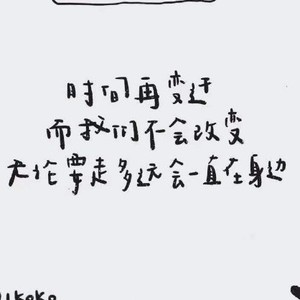 时间再变迁
而我们不会改变
无论要走多远会一直在身边